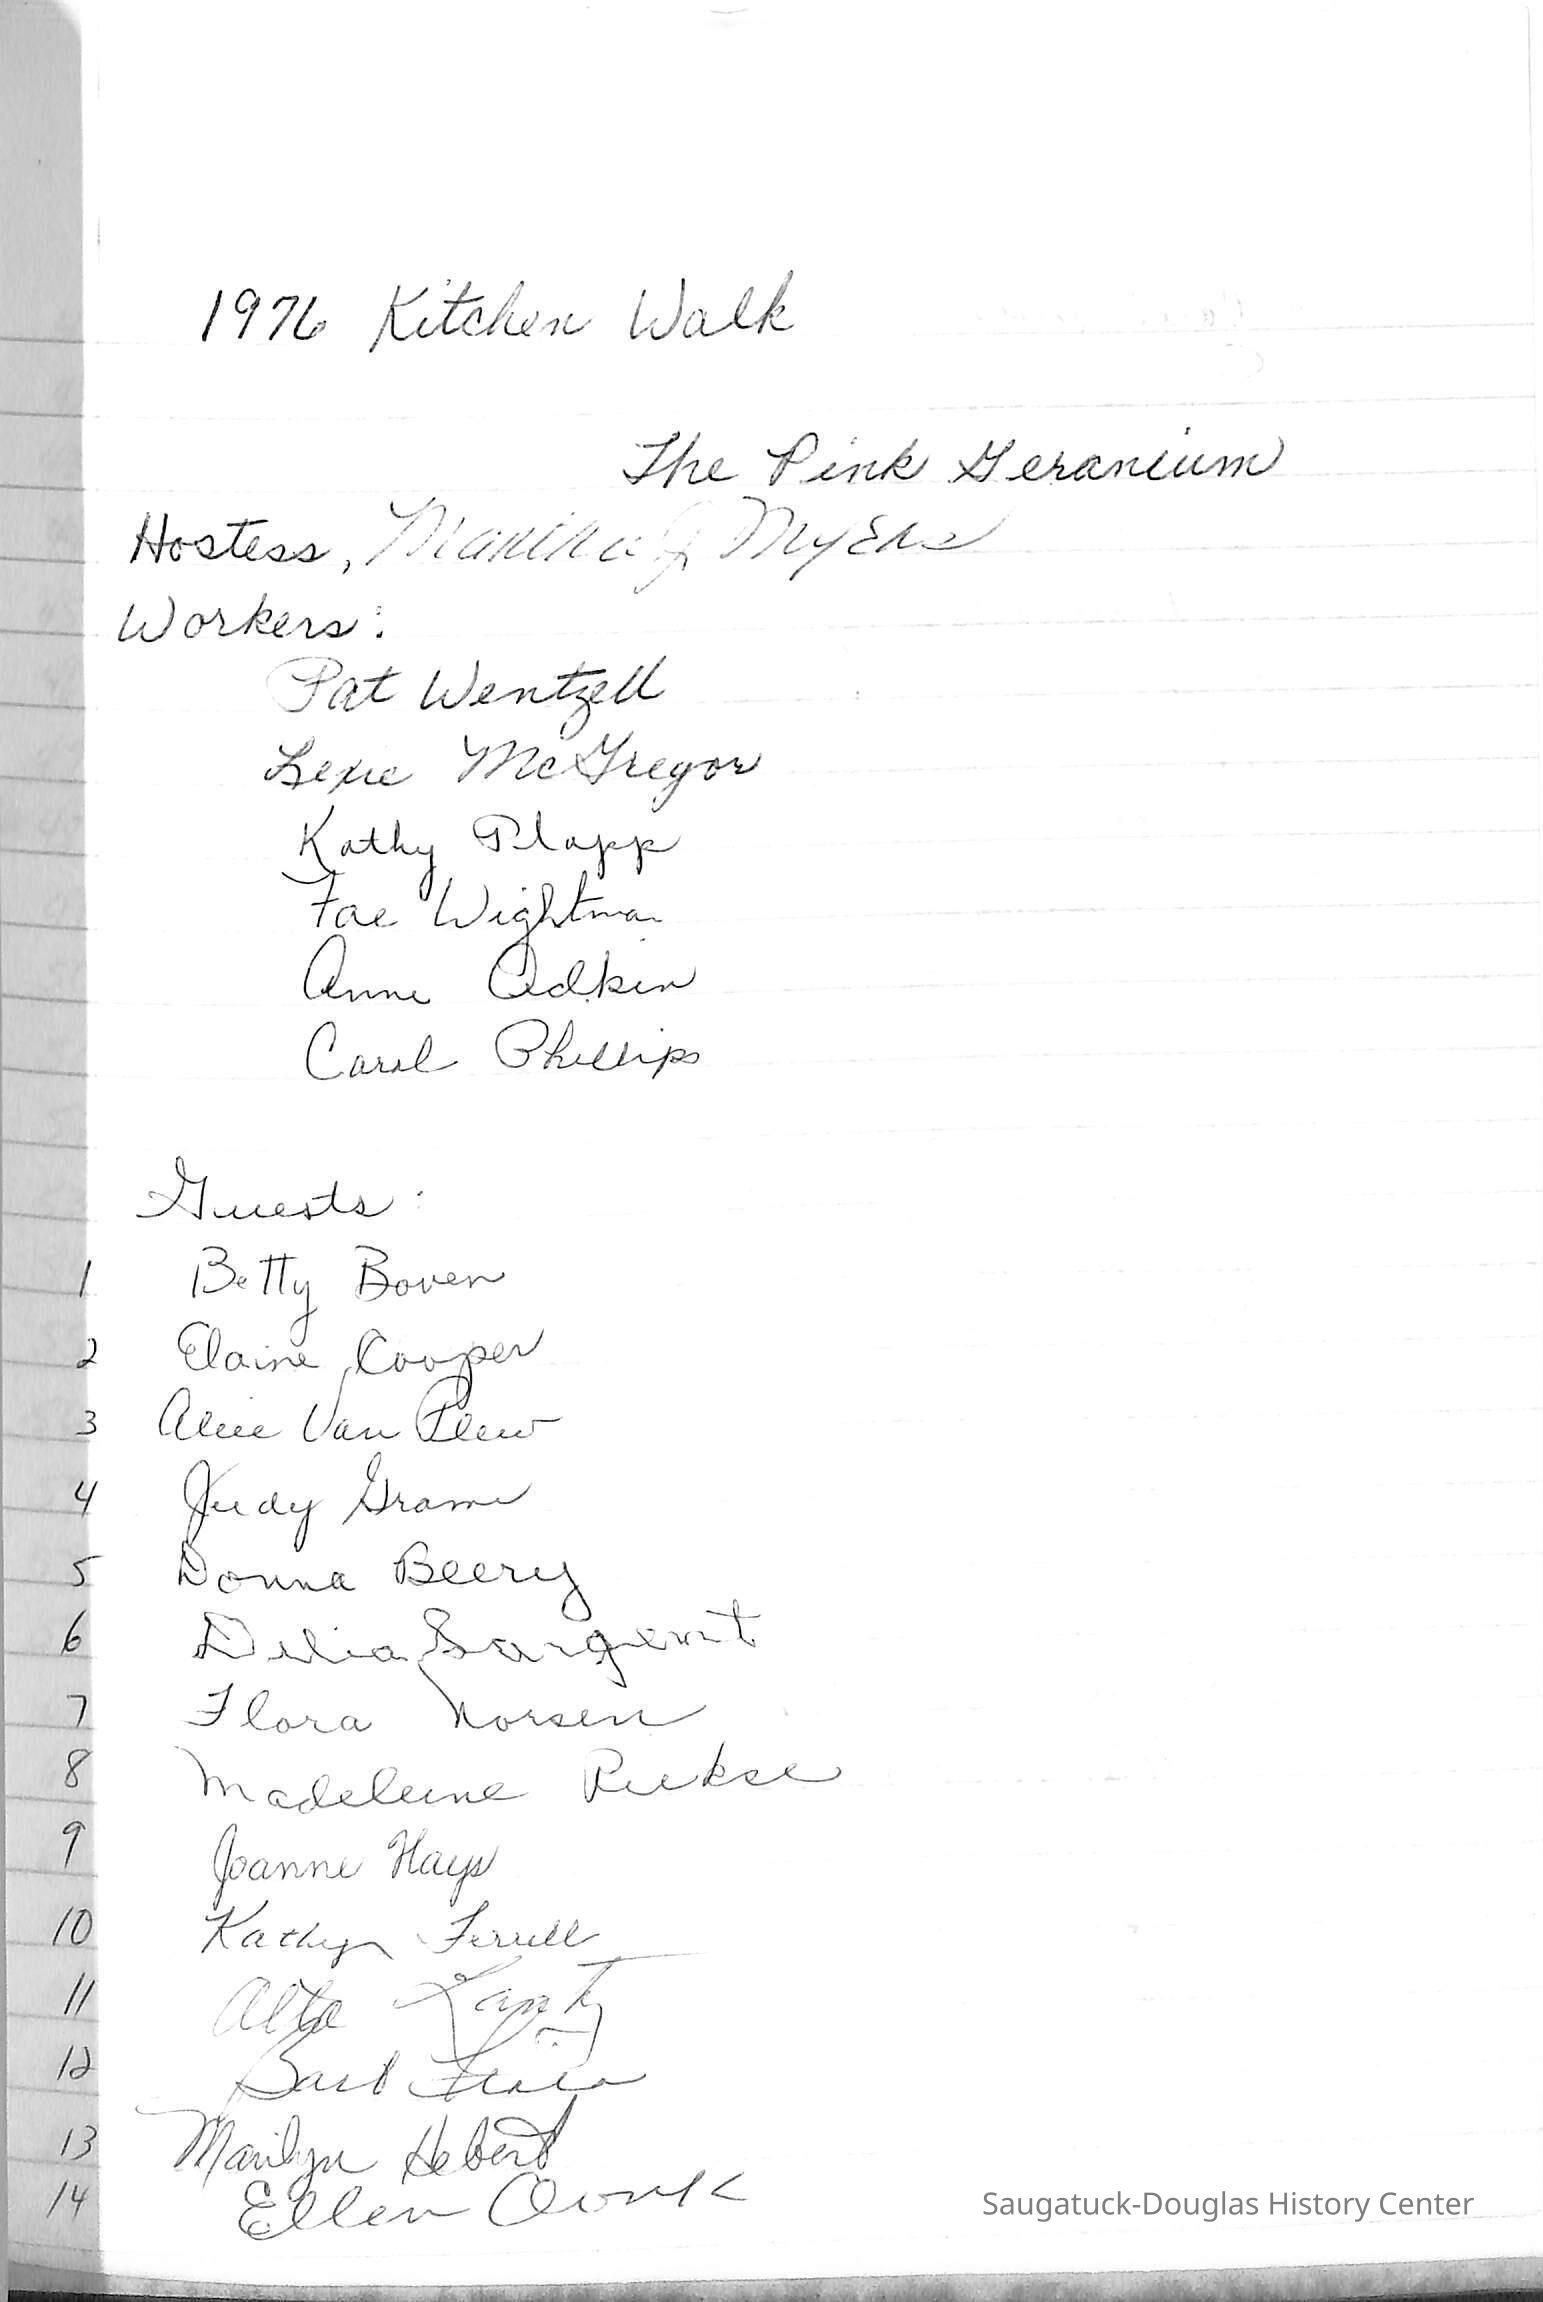 1976 Kitchen Walk
The Pink Geranium
Hostess, J Myers
Workers:
Pat Wentzell
Lexie McGregor
Kathy Plapp
Fae Wightman
Anne Adkin
Carol Phillips
Guests:
1 Betty Boven
2 Elaine Cooper
3 Alice Van Plew
4 Judy Grame
5 Donna Beery
6 Delia Sargent
7 Flora Norsen
8 Madeleine
9 Joanne Hays
10 Kathryn Ferrell
11 Alta Lantz
12 Barb
13 Marilyn Hebert
14 Ellen
Saugatuck-Douglas History Center